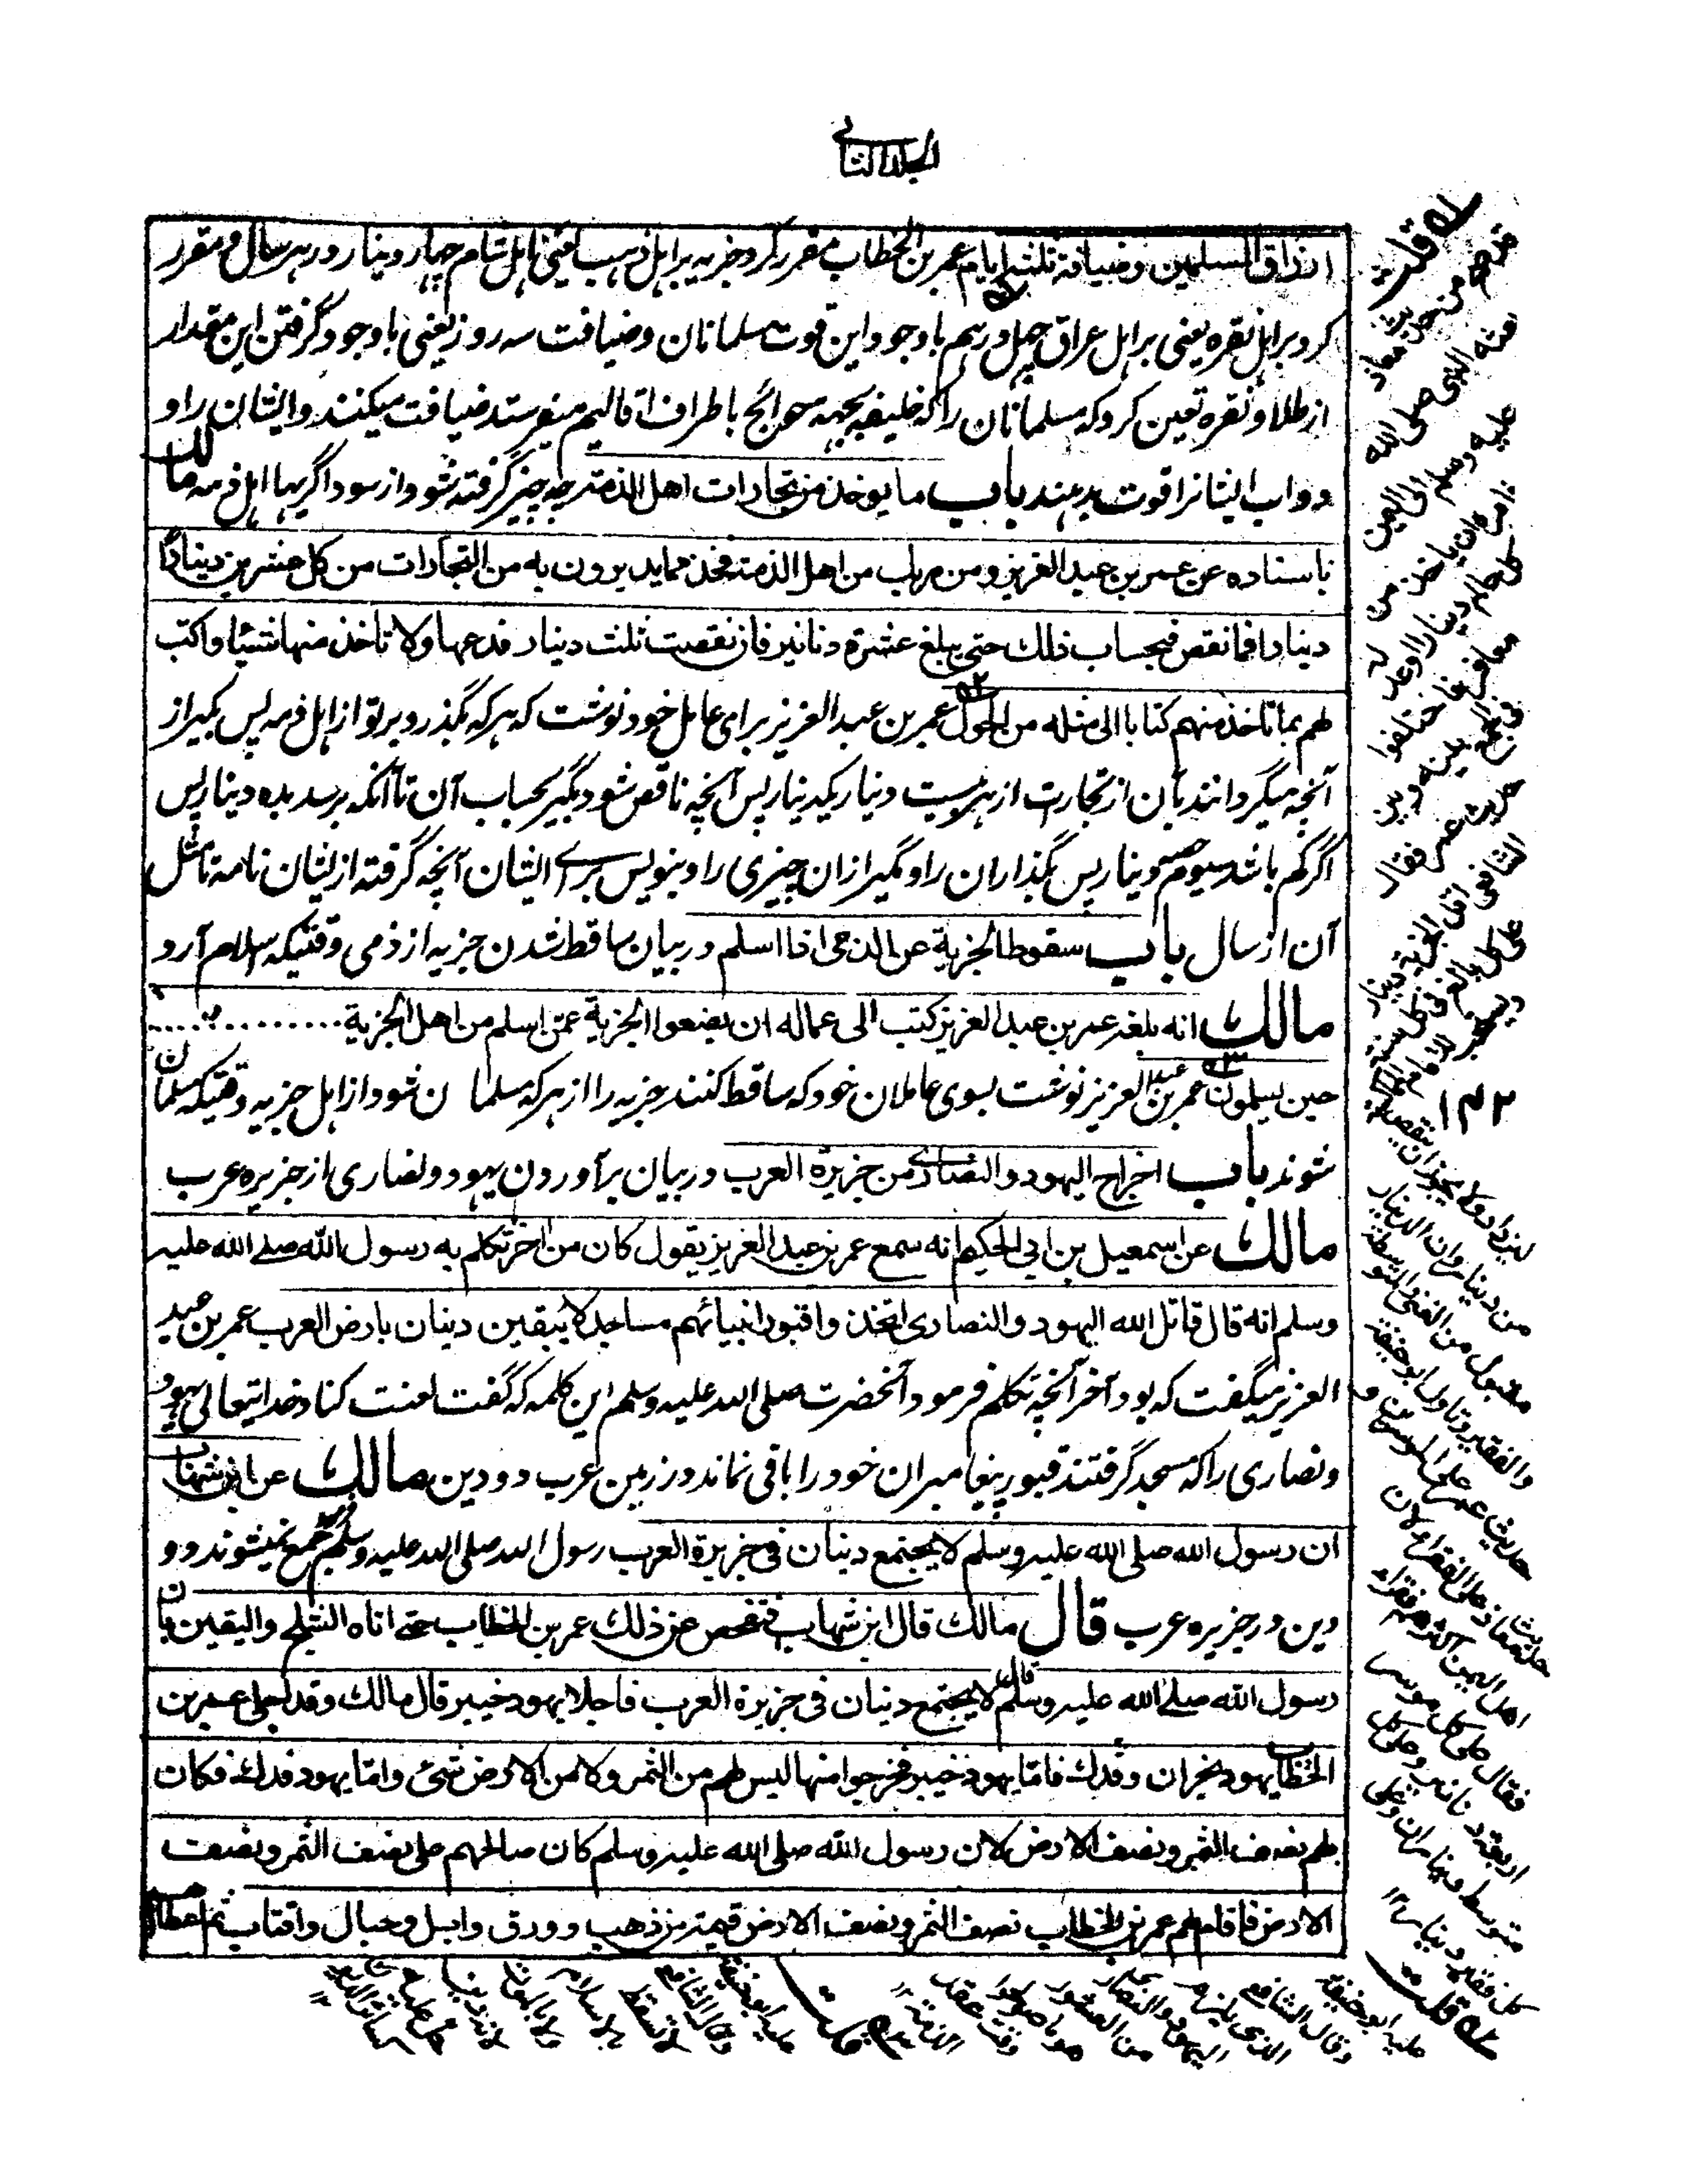 الجلد الثانی
ارزاق المسلمين وضيافة ثلثة ايام عمر بن الخطاب مقرر كرد جزيه بر اهل ذهب يعنى اهل شام چهار دينار در هر سال و مقرر
كرد بر اهل نقره يعنى بر اهل عراق چهل درهم با وجود اين قوت مسلمانان و ضيافت سه روز يعنى با وجود گرفتن اين مقدار
از طلا و نقره تعين كرد كه مسلمانان را كه خليفه بجهه حوائج باطراف اقاليم ميفرستد ضيافت ميكنند و ايشان را و
دواب ايشانرا قوت بدهند باب ما يوخذ من تجارات اهل الذمة چه چيز گرفته شود از سوداگريها اهل ذمه مالك
باسناده عن عمر بن عبد العزيز ومن مر بك من اهل الذمة فخذ مما يديرون به من التجارات من كل عشرين دينارا
دينارا فما نقص فبحساب ذلك حتى يبلغ عشرة دنانير فان نقصت ثلث دينار فدعها ولا تاخذ منها شيئا واكتب
لهم بما تاخذ منهم كتابا الى مثله من الحول عمر بن عبد العزيز براى عامل خود نوشت كه هر كه بگذرد بر تو از اهل ذمه پس بگير از
آنچه ميگردانند بآن از تجارت از هر بيست دينار يكدينار پس آنچه ناقص شود بگير بحساب آن تا آنكه برسد بده دينار پس
اگر كم باشد سيوم حصه دينار پس بگذار ان را و مگير ازان چيزى را و بنويس براے ايشان آنچه گرفته از ايشان نامه تا مثل
آن از سال باب سقوط الجزية عن الذمى اذا اسلم در بيان ساقط شدن جزيه از ذمى وقتيكه اسلام آرد
مالك انه بلغه عمر بن عبد العزيز كتب الى عماله ان يضعوا الجزية عمن اسلم من اهل الجزية
حين يسلمون عمر بن عبد العزيز نوشت بسوى عاملان خود كه ساقط كنند جزيه را از هر كه مسلمان شود از اهل جزيه وقتيكه مسلمان
شوند باب اخراج اليهود والنصارى من جزيرة العرب در بيان بر آوردن يهود و نصارى از جزيره عرب
مالك عن اسمعيل بن ابى الحكيم انه سمع عمر بن عبد العزيز يقول كان من اخر ما تكلم به رسول الله صلے الله عليه
وسلم انه قال قاتل الله اليهود والنصارى اتخذوا قبور انبيائهم مساجد لا يبقين دينان بارض العرب عمر بن عبد
العزيز ميگفت كه بود آخر آنچه تكلم فرمود آنحضرت صلى الله عليه وسلم اين كلمه كه گفت لعنت كناد خدايتعالى يهود
و نصارى را كه مسجد گرفتند قبور پيغامبران خود را باقى نماند در زمين عرب دو دين مالك عن ابن شهاب
ان رسول الله صلى الله عليه وسلم لا يجتمع دينان فى جزيرة العرب رسول الله صلى الله عليه وسلم فرمود جمع نميشوند دو
دين در جزيره عرب قال مالك قال ابن شهاب ففحص عن ذلك عمر بن الخطاب حتى اتاه الثلج واليقين بان
رسول الله صلے الله عليه وسلم قال لا يجتمع دينان فى جزيرة العرب فاجلا يهود خيبر قال مالك وقد اجلى عمر بن
الخطاب يهود نجران وفدك فاما يهود خيبر فخرجوا منها ليس لهم من الثمر ولا من الارض شىء واما يهود فدك فكان
لهم نصف الثمر ونصف الارض لان رسول الله صلى الله عليه وسلم كان صالحهم على نصف الثمر ونصف
الارض فاقام لهم عمر بن الخطاب نصف الثمر ونصف الارض قيمة من ذهب وورق وابل وحبال واقتاب ثم اعطاهم
له قلت
قد صح من حديث معاذ
بعثه النبى صلى الله
عليه وسلم الى اليمن
فامره ان ياخذ من
كل حالم دينارا او عدله
معافر فاختلفوا
فى الجمع بينه وبين
حديث عمر فقال
الشافعى اقل الجزية دينار
على كل بالغ فى كل سنة
١٣٢
من دينار وان الدينار
مقبول من الغنى والمتوسط
والفقير وتاول ابو حنيفة
حديث عمر على الموسرين و
حديث معاذ على الفقراء لان
اهل اليمن اكثرهم فقراء
فقال على كل موسر
اربعة دنانير وعلى كل
متوسط ديناران وعلى
كل فقير دينار ١٢
له قلت
عليه ابو حنيفة
وقال الشافعى